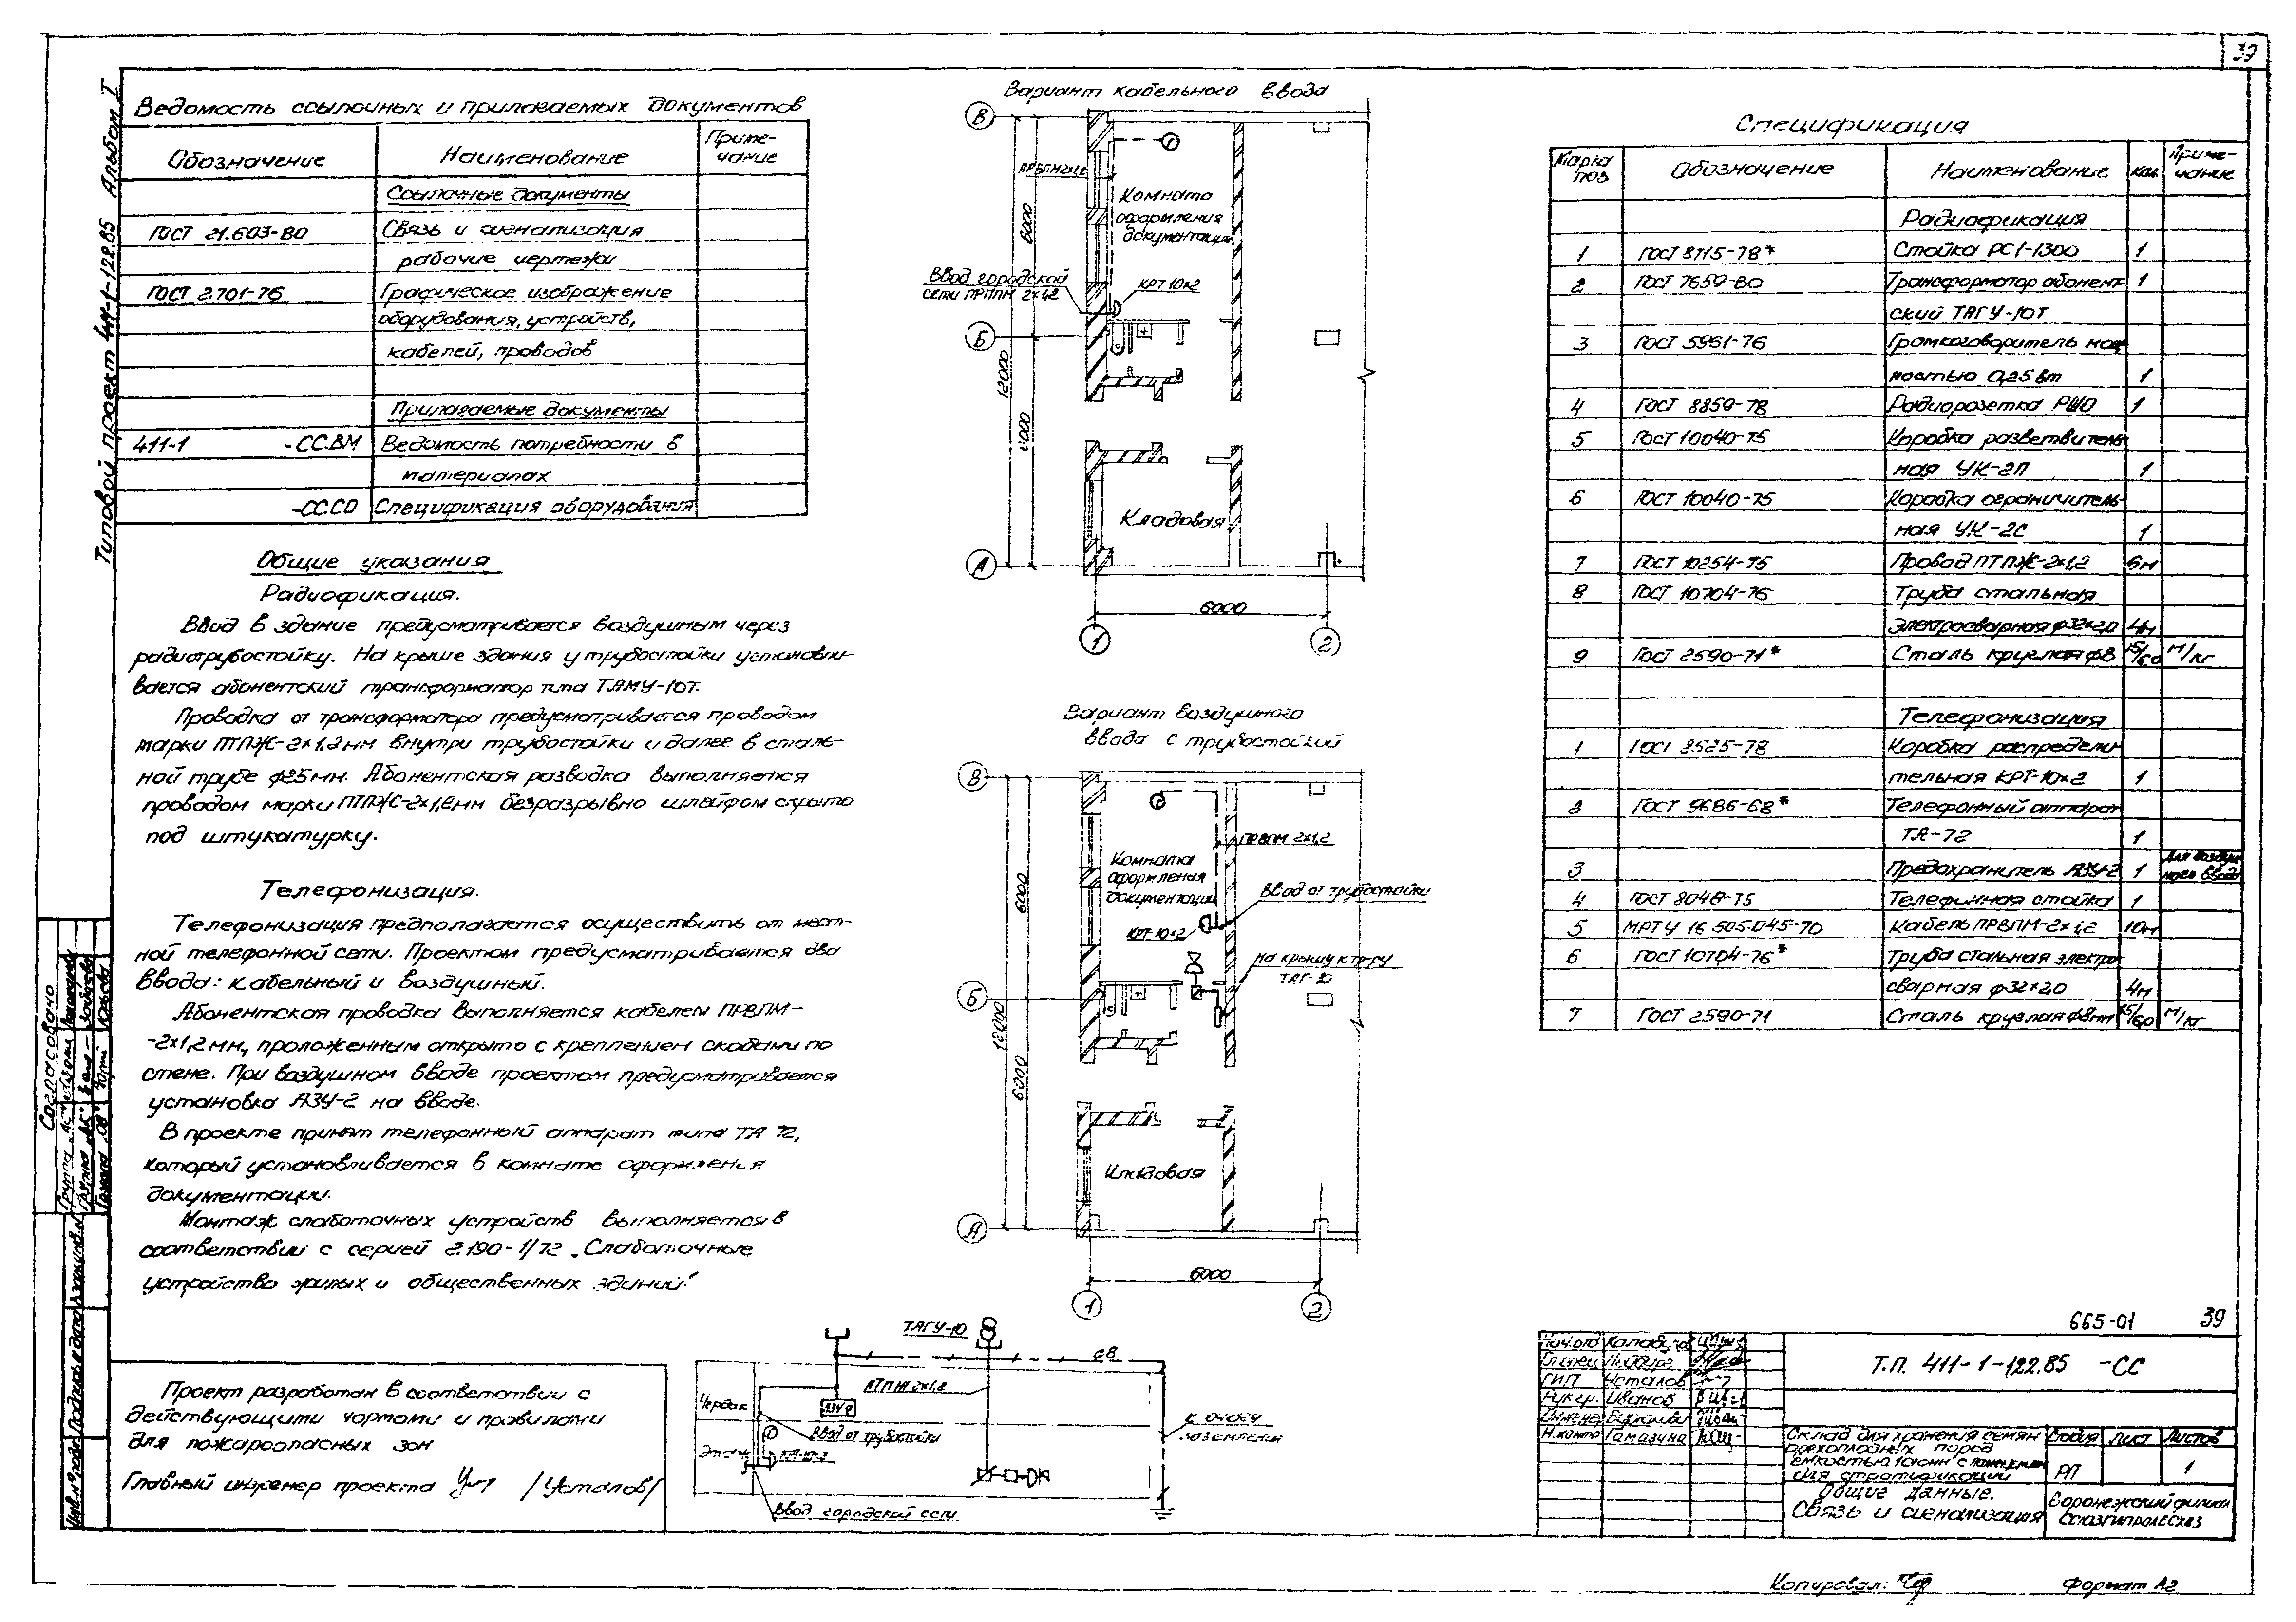 39
Типовой проект 411-1-122.85 Альбом I
Ведомость ссылочных и прилагаемых документов
Обозначение Наименование Приме-
чание
Ссылочные документы
ГОСТ 21.603-80 Связь и сигнализация
рабочие чертежи
ГОСТ 2.701-76 Графическое изображение
оборудования, устройств,
кабелей, проводов
Прилагаемые документы
411-1 -СС.ВМ Ведомость потребности в
материалах
-СС.СО Спецификация оборудования
Общие указания
Радиофикация.
Ввод в здание предусматривается воздушным через
радиотрубостойку. На крыше здания у трубостойки устанавли-
вается абонентский трансформатор типа ТАМУ-10Т.
Проводка от трансформатора предусматривается проводом
марки ПТПЖ-2×1.2мм внутри трубостойки и далее в сталь-
ной трубе ф25мм. Абонентская разводка выполняется
проводом марки ПТПЖ-2×1,2мм безразрывно шлейфом скрыто
под штукатурку.
Телефонизация.
Телефонизация предполагается осуществить от мест-
ной телефонной сети. Проектом предусматривается два
ввода: кабельный и воздушный.
Абонентская проводка выполняется кабелем ПРВПМ-
-2×1,2мм, проложенным открыто с креплением скобами по
стене. При воздушном вводе проектом предусматривается
установка АЗУ-2 на вводе.
В проекте принят телефонный аппарат типа ТА 72,
который устанавливается в комнате оформления
документации.
Монтаж слаботочных устройств выполняется в
соответствии с серией 2.190-1/72 „Слаботочные
устройства жилых и общественных зданий."
Проект разработан в соответствии с
действующими нормами и правилами
для пожароопасных зон
Главный инженер проекта /Усталов/
Вариант кабельного ввода
В
ПРВПМ 2×1.2
Комната
оформления
документации
6000
Ввод городской
сети ПРППМ 2×1.2
КРТ 10×2
Б
12000
6000
Кладовая
А
6000
1 2
Вариант воздушного
ввода с трубостойкой
В
ПРВПМ 2×1,2
Комната
оформления
документации
6000
Ввод от трубостойки
КРТ-10×2
На крышу к тр-ру
ТАГ-10
Б
12000
6000
Кладовая
А
6000
1 2
ТАГУ-10
ф8
ПТПЖ 2×1,2
Чердак
АЗУ-2
Ввод от трубостойки
Этаж КРТ-10×2
к очагу
заземления
Ввод городской сети
Спецификация
Марка
поз Обозначение Наименование Кол Приме-
чание
Радиофикация
1 ГОСТ 8715-78* Стойка РС1-1300 1
2 ГОСТ 7659-80 Трансформатор абонент 1
ский ТАГУ-10Т
3 ГОСТ 5961-76 Громкоговоритель мощ
ностью 0,25вт 1
4 ГОСТ 8859-78 Радиорозетка РШО 1
5 ГОСТ 10040-75 Коробка разветвитель-
ная УК-2П 1
6 ГОСТ 10040-75 Коробка ограничитель-
ная УК-2С 1
7 ГОСТ 10254-75 Провод ПТПЖ-2×1,2 6м
8 ГОСТ 10704-76 Труба стальная
электросварная ф32×2,0 4м
9 ГОСТ 2590-71* Сталь круглая ф8 15/6,0 м/кг
Телефонизация
1 ГОСТ 8525-78 Коробка распредели-
тельная КРТ-10×2 1
2 ГОСТ 9686-68* Телефонный аппарат
ТА-72 1
3 Предохранитель АЗУ-2 1 Для воздуш
ного ввода
4 ГОСТ 8048-75 Телефонная стойка 1
5 МРТУ 16 505.045-70 Кабель ПРВПМ-2×1,2 10м
6 ГОСТ 10704-76* Труба стальная электро
сварная ф32×2,0 4м
7 ГОСТ 2590-71 Сталь круглая ф8мм 15/6,0 м/кг
665-01 39
Нач.отд
Гл.спец
ГИП Усталов
Рук.гр. Иванов
Инженер
Н.контр Тамазина
Т.П. 411-1-122.85 -СС
Склад для хранения семян
орехоплодных пород
емкостью 10тонн с помещением
для стратификации
Стадия Лист Листов
РП 1
Общие данные.
Связь и сигнализация
Воронежский филиал
Союзгипролесхоз
Копировал: Формат А2
Согласовано
Группа
Группа
Группа
Инв.№ подл. Подпись и дата Взам.инв.№